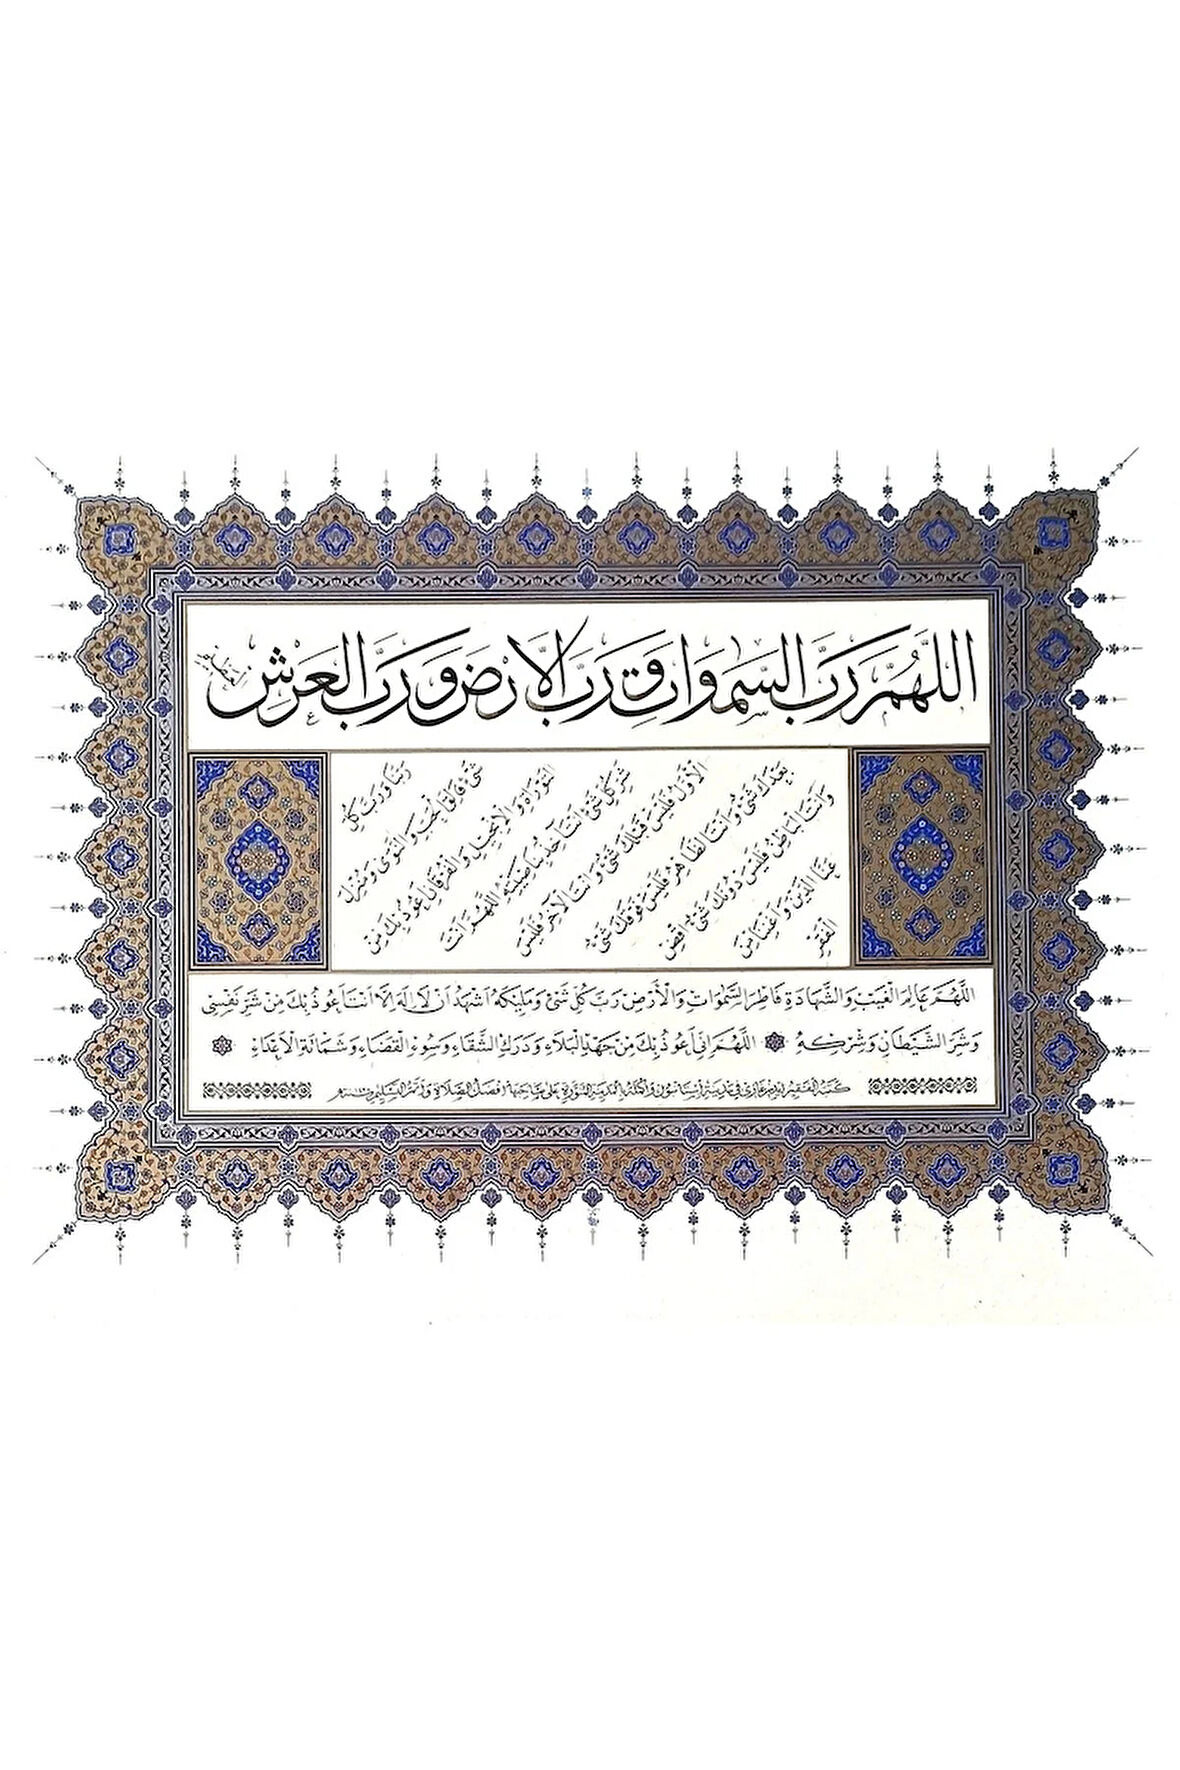 اللَّهُمَّ رَبَّ السَّمٰوَاتِ وَرَبَّ الْاَرْضِ وَرَبَّ الْعَرْشِ الْعَظِيمِ
رَبَّنَا وَرَبَّ كُلِّ
شَيْءٍ فَالِقَ الْحَبِّ وَالنَّوٰى وَمُنْزِلَ
التَّوْرَاةِ وَالْاِنْجِيلِ وَالْفُرْقَانِ اَعُوذُ بِكَ مِنْ
شَرِّ كُلِّ شَيْءٍ اَنْتَ آخِذٌ بِنَاصِيَتِهِ اللَّهُمَّ اَنْتَ
الْاَوَّلُ فَلَيْسَ قَبْلَكَ شَيْءٌ وَاَنْتَ الْآخِرُ فَلَيْسَ
بَعْدَكَ شَيْءٌ وَاَنْتَ الظَّاهِرُ فَلَيْسَ فَوْقَكَ شَيْءٌ
وَاَنْتَ الْبَاطِنُ فَلَيْسَ دُونَكَ شَيْءٌ اقْضِ
عَنَّا الدَّيْنَ وَاَغْنِنَا مِنَ
الْفَقْرِ
اَللَّهُمَّ عَالِمَ الْغَيْبِ وَالشَّهَادَةِ فَاطِرَ السَّمٰوَاتِ وَالْاَرْضِ رَبَّ كُلِّ شَيْءٍ وَمَلِيكَهُ اَشْهَدُ اَنْ لَا اِلٰهَ اِلَّا اَنْتَ اَعُوذُ بِكَ مِنْ شَرِّ نَفْسِي
وَشَرِّ الشَّيْطَانِ وَشِرْكِهِ اَللَّهُمَّ اِنِّي اَعُوذُ بِكَ مِنْ جَهْدِ الْبَلَاءِ وَدَرَكِ الشَّقَاءِ وَسُوءِ الْقَضَاءِ وَشَمَاتَةِ الْاَعْدَاءِ
كَتَبَهُ الْفَقِيرُ فِي مَدِينَةِ الْمَدِينَةِ الْمُنَوَّرَةِ عَلَى صَاحِبِهَا اَفْضَلُ الصَّلَاةِ وَاَتَمُّ التَّسْلِيمِ